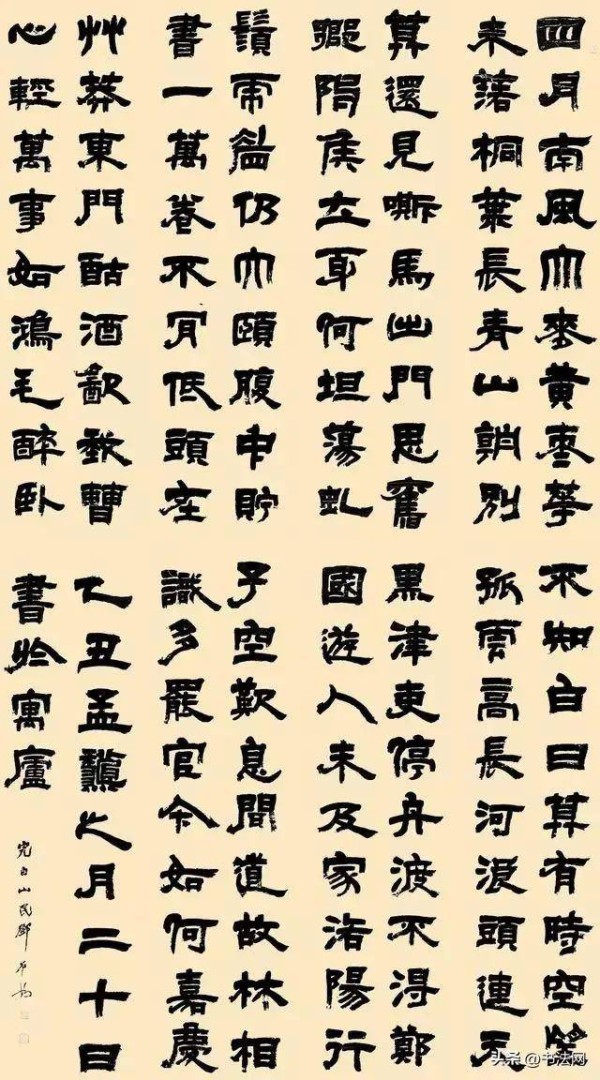 四月南風大麥黃棗華
未落桐葉長青山朝別
莫還見嘶馬出門思舊
鄉陳侯立身何坦蕩虬
鬚虎眉仍大頤腹中貯
書一萬卷不肯低頭在
艸莽東門酤酒飲我曹
心輕萬事如鴻毛醉臥
不知白日莫有時空望
孤雲高長河浪頭連天
黑津吏停舟渡不得鄭
國遊人未及家洛陽行
子空歎息聞道故林相
識多罷官今如何嘉慶
乙丑孟龝之月二十日
書於寓廬
完白山民鄧石如
头条@书法网